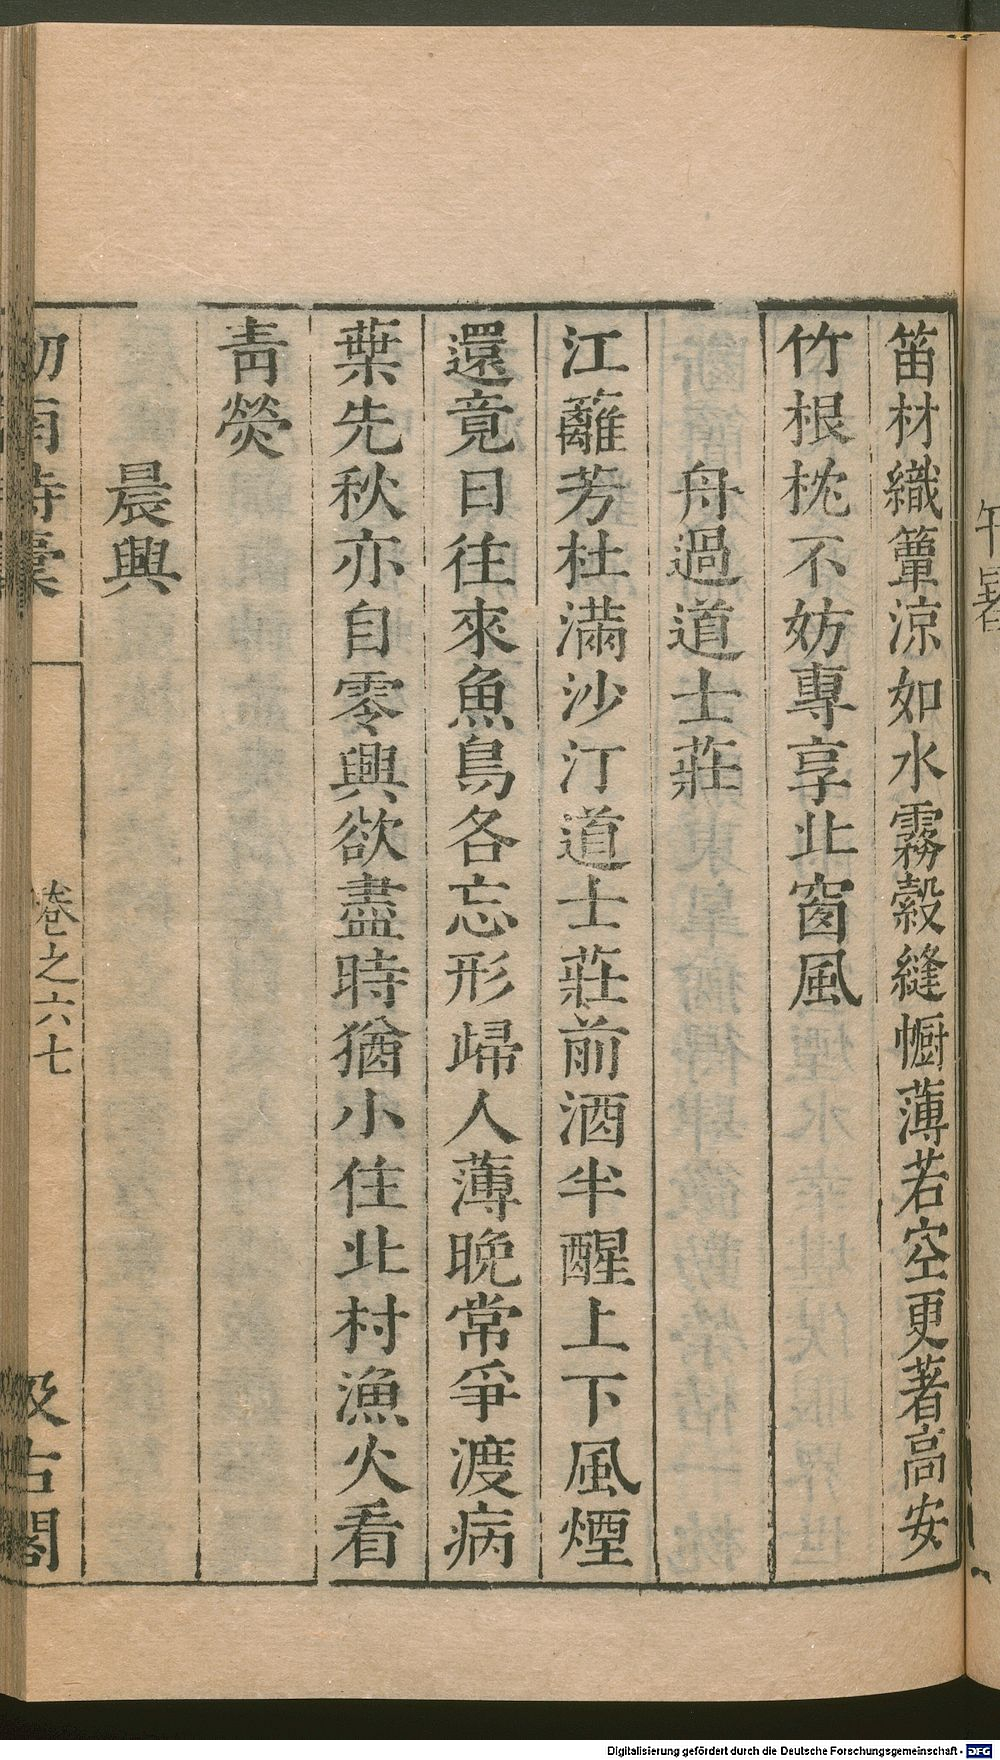 笛材織簟涼如水霧縠縫幮薄若空更著高安
竹根枕不妨專享北窗風
舟過道士莊
江蘺芳杜滿沙汀道士莊前酒半醒上下風煙
還竟日往來魚鳥各忘形歸人薄晚常爭渡病
葉先秋亦自零興欲盡時猶小住北村漁火看
靑熒
晨興
劒南詩稾
卷之六七
汲古閣
Digitalisierung gefördert durch die Deutsche Forschungsgemeinschaft - DFG